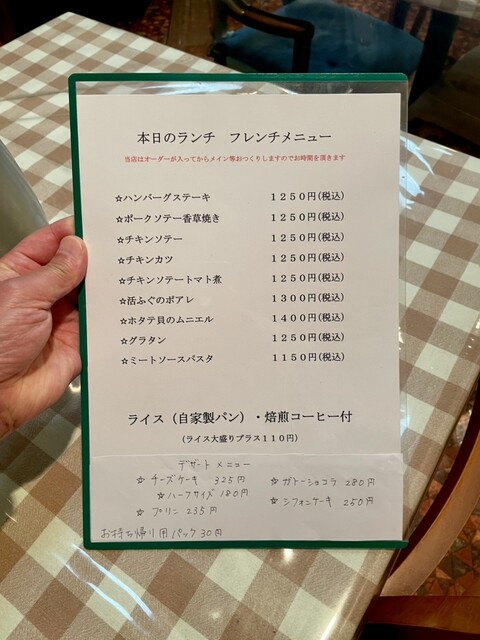 本日のランチ　フレンチメニュー
当店はオーダーが入ってからメイン等おつくりしますのでお時間を頂きます
☆ハンバーグステーキ　１２５０円(税込)
☆ポークソテー香草焼き　１２５０円(税込)
☆チキンソテー　１２５０円(税込)
☆チキンカツ　１２５０円(税込)
☆チキンソテートマト煮　１２５０円(税込)
☆活ふぐのポアレ　１３００円(税込)
☆ホタテ貝のムニエル　１４００円(税込)
☆グラタン　１２５０円(税込)
☆ミートソースパスタ　１１５０円(税込)
ライス（自家製パン）・焙煎コーヒー付
（ライス大盛りプラス１１０円）
デザートメニュー
☆ チーズケーキ 325円　☆ ガトーショコラ 280円
☆ハーフサイズ 180円　☆ シフォンケーキ 250円
☆ プリン 235円
お持ち帰り用パック 30円